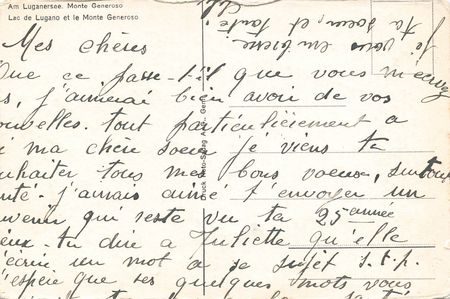 Am Luganersee. Monte Generoso
Lac de Lugano et le Monte Generoso
Mes chères
Que ce passe-t-il que vous m'ecrivez
s, j'aimerai bien avoir de vos
ouvelles. tout particulièrement a
i ma chere soeur je viens ta
uhaiter tous mes bons voeux, surtout
nté. j'aurais aimé t'envoyer un
uvenir qui reste vu ta 25 année
eux-tu dire a Juliette qu'elle
'écrive un mot a se sujet s.t.p.
'espère que ses quelques mots vous
je vous embrasse
ta soeur, et tante